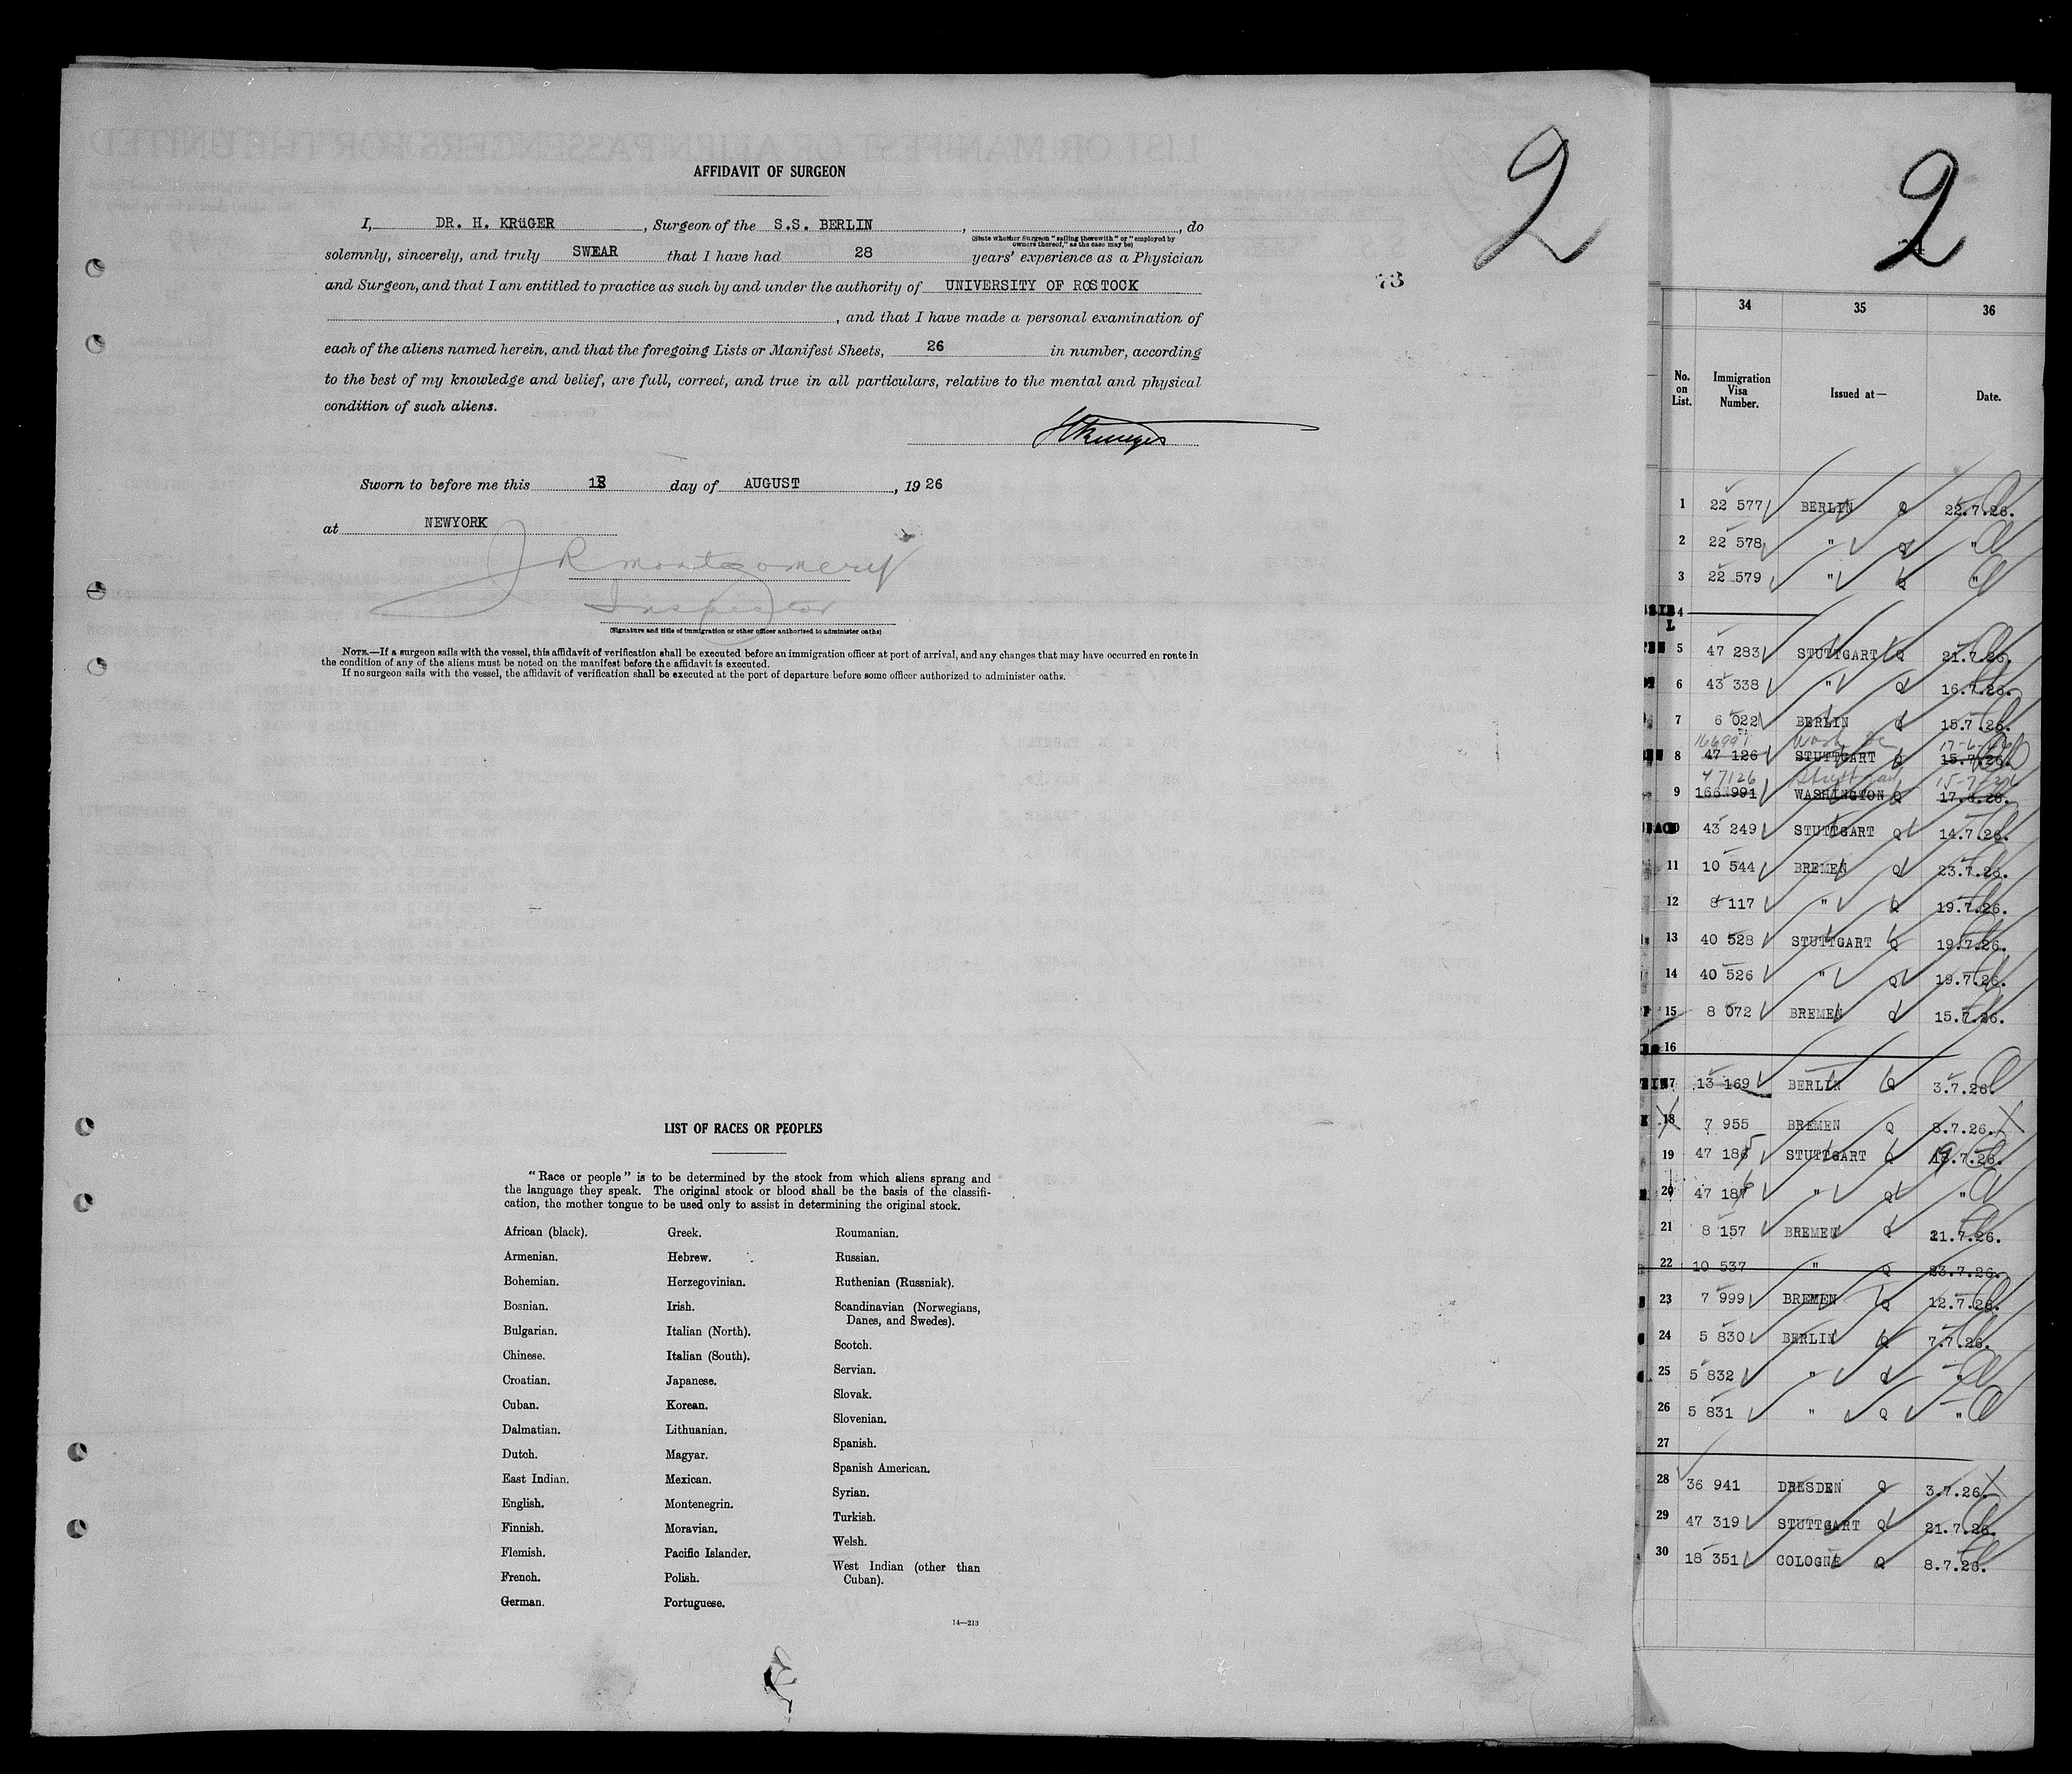 AFFIDAVIT OF SURGEON
I, DR. H. KRüGER, Surgeon of the S.S. BERLIN, , do
(State whether Surgeon "sailing therewith" or "employed by
owners thereof," as the case may be)
solemnly, sincerely, and truly SWEAR that I have had 28 years' experience as a Physician
and Surgeon, and that I am entitled to practice as such by and under the authority of UNIVERSITY OF ROSTOCK
, and that I have made a personal examination of
each of the aliens named herein, and that the foregoing Lists or Manifest Sheets, 26 in number, according
to the best of my knowledge and belief, are full, correct, and true in all particulars, relative to the mental and physical
condition of such aliens.
HKrueger
Sworn to before me this day of AUGUST, 1926
at NEWYORK
JRMontgomery
Inspector
(Signature and title of immigration or other officer authorized to administer oaths)
NOTE.—If a surgeon sails with the vessel, this affidavit of verification shall be executed before an immigration officer at port of arrival, and any changes that may have occurred en route in
the condition of any of the aliens must be noted on the manifest before the affidavit is executed.
If no surgeon sails with the vessel, the affidavit of verification shall be executed at the port of departure before some officer authorized to administer oaths.
2
73
LIST OF RACES OR PEOPLES
"Race or people" is to be determined by the stock from which aliens sprang and
the language they speak. The original stock or blood shall be the basis of the classifi-
cation, the mother tongue to be used only to assist in determining the original stock.
African (black).
Armenian.
Bohemian.
Bosnian.
Bulgarian.
Chinese.
Croatian.
Cuban.
Dalmatian.
Dutch.
East Indian.
English.
Finnish.
Flemish.
French.
German.
Greek.
Hebrew.
Herzegovinian.
Irish.
Italian (North).
Italian (South).
Japanese.
Korean.
Lithuanian.
Magyar.
Mexican.
Montenegrin.
Moravian.
Pacific Islander.
Polish.
Portuguese.
Roumanian.
Russian.
Ruthenian (Russniak).
Scandinavian (Norwegians,
Danes, and Swedes).
Scotch.
Servian.
Slovak.
Slovenian.
Spanish.
Spanish American.
Syrian.
Turkish.
Welsh.
West Indian (other than
Cuban).
14—213
2
34 35 36
No. on List. Immigration Visa Number. Issued at— Date.
1 22 577 BERLIN Q 22.7.26.
2 22 578 " Q "
3 22 579 " Q "
4
5 47 283 STUTTGART Q 21.7.26.
6 43 338 " Q 16.7.26.
7 6 022 BERLIN Q 15.7.26.
166991 Wash DC 17-6-26
8 47 126 STUTTGART Q 15.7.26.
47126 Stuttgart 15-7-26
9 166 991 WASHINGTON Q 17.6.26.
10 43 249 STUTTGART Q 14.7.26.
11 10 544 BREMEN Q 23.7.26.
12 8 117 " Q 19.7.26.
13 40 528 STUTTGART Q 19.7.26.
14 40 526 " Q 19.7.26.
15 8 072 BREMEN Q 15.7.26.
16
17 13 169 BERLIN Q 3.7.26.
18 7 955 BREMEN Q 8.7.26.
19 47 185 STUTTGART Q 19.7.26.
20 47 186 " Q "
21 8 157 BREMEN Q 21.7.26.
22 10 537 " Q 23.7.26.
23 7 999 BREMEN Q 12.7.26.
24 5 830 BERLIN Q 7.7.26.
25 5 832 " Q "
26 5 831 " Q "
27
28 36 941 DRESDEN Q 3.7.26.
29 47 319 STUTTGART Q 21.7.26.
30 18 351 COLOGNE Q 8.7.26.